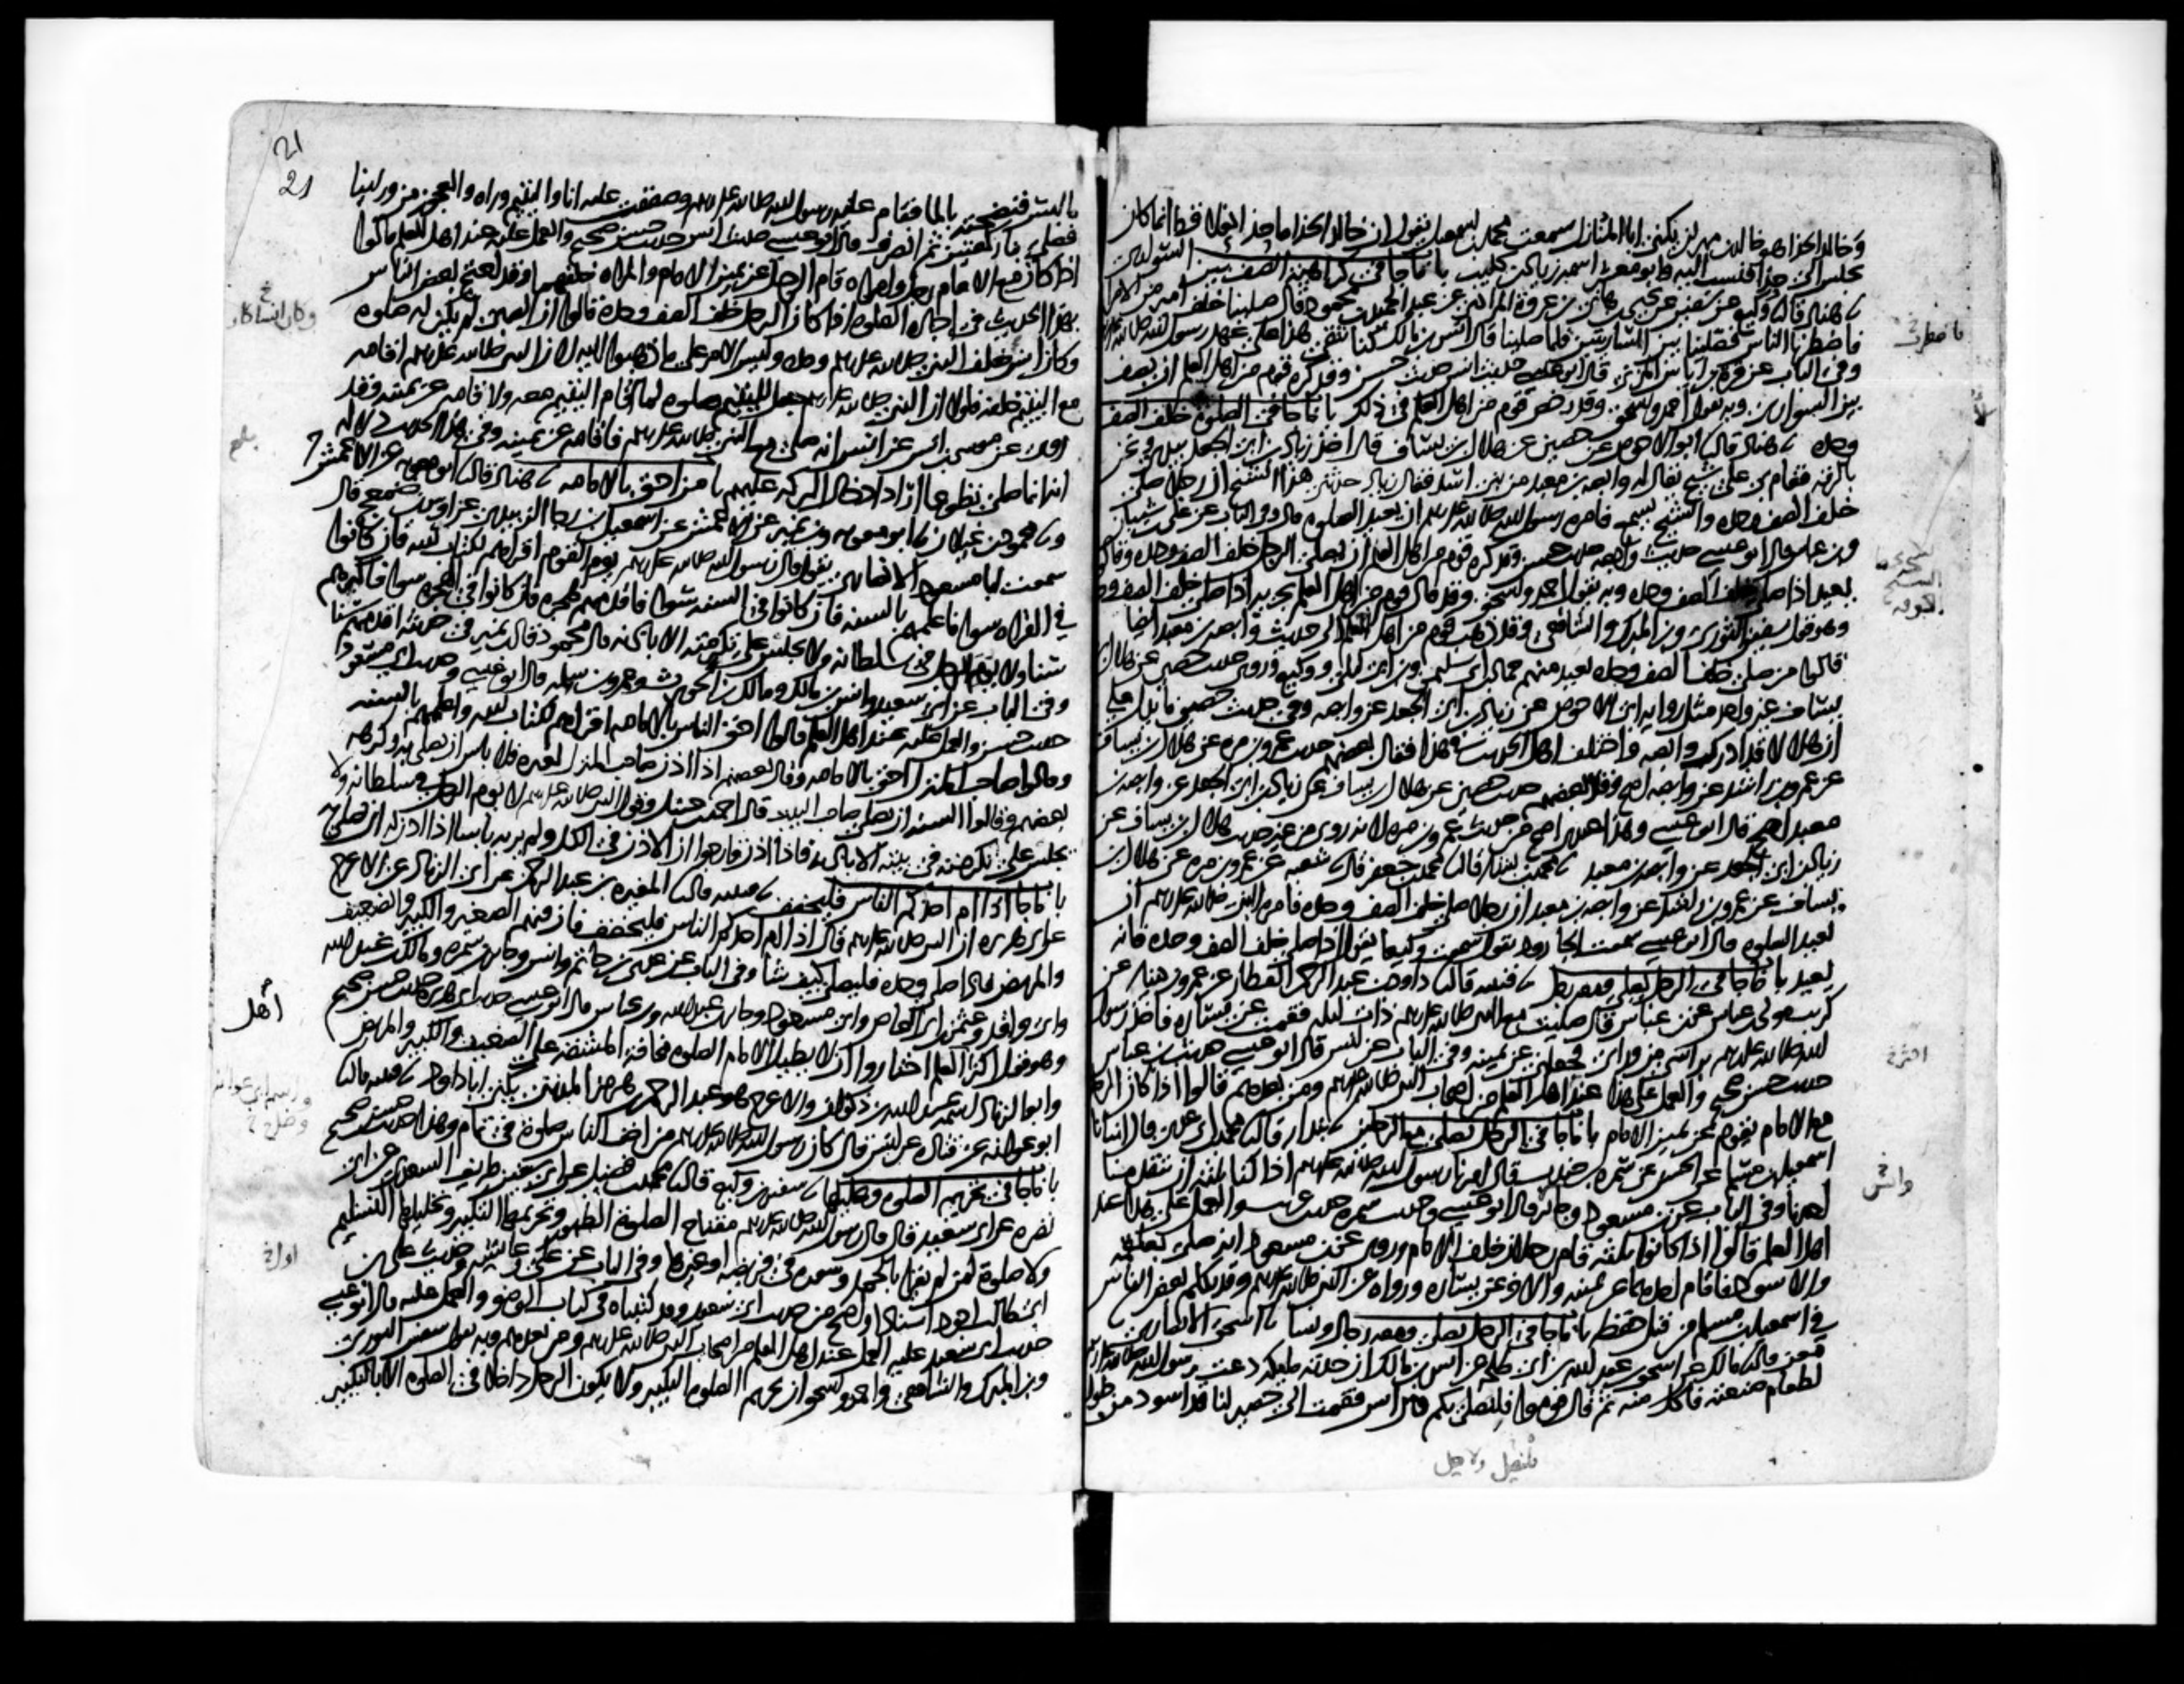 وخالد الحذا هو خالد بن مهران يكنى ابا المنازل سمعت محمد بن اسمعيل يقول ان خالد الحذا ما حذا نعلا قط انما كان
يجلس الى حذا فنسب اليه وابو معشر اسمه زياد بن كليب باب ما جا في كراهية الصف بين السواري
هناد قال وكيع عن سفين عن يحيى بن هانئ بن عروة المرادي عن عبد الحميد بن محمود قال صلينا خلف امير من الامرا
فاضطرنا الناس فصلينا بين الساريتين فلما صلينا قال انس بن مالك كنا نتقي هذا على عهد رسول الله صلى الله عليه وسلم
وفي الباب عن قرة بن اياس المزني قال ابو عيسى حديث انس حديث حسن وقد كره قوم من اهل العلم ان يصف
بين السواري وبه يقول احمد واسحق وقد رخص قوم من اهل العلم في ذلك باب ما جا في الصلوة خلف الصف
وحده هناد قال ابو الاحوص عن حصين عن هلال بن يساف قال اخذ زياد بن ابي الجعد بيدي ونحن
بالرقة فقام بي على شيخ يقال له وابصة بن معبد من بني اسد فقال زياد حدثني هذا الشيخ ان رجلا صلى
خلف الصف وحده والشيخ يسمع فامره رسول الله صلى الله عليه وسلم ان يعيد الصلوة قال وفي الباب عن علي بن شيبان
وابن عباس قال ابو عيسى حديث وابصة حديث حسن وقد كره قوم من اهل العلم ان يصلي الرجل خلف الصف وحده وقالوا
يعيد اذا صلى خلف الصف وحده وبه يقول احمد واسحق وقد قال قوم من اهل العلم يجزيه اذا صلى خلف الصف وحده
وهو قول سفين الثوري وابن المبارك والشافعي وقد ذهب قوم من اهل الى حديث وابصة بن معبد ايضا
قالوا من صلى خلف الصف وحده يعيد منهم حماد بن ابي سليمن وابن ابي ليلى ووكيع وروى حديث حصين عن هلال بن
يساف غير واحد مثل رواية ابي الاحوص عن زياد بن ابي الجعد عن وابصة وفي حديث حصين ما يدل على
ان هلالا قد ادرك وابصة واختلف اهل الحديث في هذا فقال بعضهم حديث عمرو بن مرة عن هلال بن يساف
عن عمرو بن راشد عن وابصة اصح وقال بعضهم حديث حصين عن هلال بن يساف عن زياد بن ابي الجعد عن وابصة بن
معبد اصح قال ابو عيسى وهذا عندي اصح من حديث عمرو بن مرة لانه روي من غير حديث هلال بن يساف عن
زياد بن ابي الجعد عن وابصة بن معبد محمد بن بشار قال محمد بن جعفر قال شعبة عن عمرو بن مرة عن هلال بن
يساف عن عمرو بن راشد عن وابصة بن معبد ان رجلا صلى خلف الصف وحده فامره النبي صلى الله عليه وسلم ان
يعيد الصلوة قال ابو عيسى سمعت الجارود يقول سمعت وكيعا يقول اذا صلى خلف الصف وحده فانه
يعيد باب ما جا في الرجل يصلي ومعه رجل قتيبة قال داود بن عبد الرحمن العطار عن عمرو بن دينار عن
كريب مولى ابن عباس عن ابن عباس قال صليت مع النبي صلى الله عليه وسلم ذات ليلة فقمت عن يساره فاخذ رسول
الله صلى الله عليه وسلم براسي من وراي فجعلني عن يمينه وفي الباب عن انس قال ابو عيسى حديث ابن عباس
حديث حسن صحيح والعمل على هذا عند اهل العلم من اصحاب النبي صلى الله عليه وسلم ومن بعدهم قالوا اذا كان الرجل
مع الامام يقوم عن يمين الامام باب ما جا في الرجل يصلي مع الرجلين بندار قال محمد بن ابي عدي قال انبانا
اسمعيل بن مسلم عن الحسن عن سمرة بن جندب قال امرنا رسول الله صلى الله عليه وسلم اذا كنا ثلثة ان يتقدمنا
احدنا وفي الباب عن ابن مسعود وجابر قال ابو عيسى وحديث سمرة حديث غريب والعمل على هذا عند
اهل العلم قالوا اذا كانوا ثلثة قام رجلان خلف الامام وروي عن ابن مسعود انه صلى بعلقمة
والاسود فاقام احدهما عن يمينه والاخر عن يساره ورواه عن النبي صلى الله عليه وسلم وقد تكلم بعض الناس
في اسمعيل بن مسلم من قبل حفظه باب ما جا في الرجل يصلي ومعه رجال ونسا اسحق الانصاري
معن قال مالك عن اسحق بن عبد الله بن ابي طلحة عن انس بن مالك ان جدته مليكة دعت رسول الله صلى الله عليه وسلم
لطعام صنعته فاكل منه ثم قال قوموا فلنصلي بكم قال انس فقمت الى حصير لنا قد اسود من طول
21
21
بالبثر فنضحته بالما فقام عليه رسول الله صلى الله عليه وسلم وصففت عليه انا واليتيم وراه والعجوز من وراينا
فصلى بنا ركعتين ثم انصرف قال ابو عيسى حديث انس حديث حسن صحيح والعمل عليه عند اهل العلم قالوا
اذا كان مع الامام رجل وامراة قام الرجل عن يمين الامام والمراة خلفهما وقد احتج بعض الناس
بهذا الحديث في اجازة الصلوة اذا كان الرجل خلف الصف وحده قالوا ان الصبي لم يكن له صلوة
وكان انس خلف النبي صلى الله عليه وسلم وحده وليس الامر على ما ذهبوا اليه لان النبي صلى الله عليه وسلم اقامه
مع اليتيم خلفه فلولا ان النبي صلى الله عليه وسلم جعل لليتيم صلوة لما اقام اليتيم معه ولاقامه عن يمينه وقد
روي عن موسى بن انس عن انس انه صلى مع النبي صلى الله عليه وسلم فاقامه عن يمينه وفي هذا الحديث دلالة
انه انما صلى تطوعا اراد ادخال البركة عليهم باب من احق بالامامة هناد قال ابو معوية عن الاعمش
ومحمود بن غيلان ابو معوية وابن نمير عن الاعمش عن اسمعيل بن رجا الزبيدي عن اوس بن ضمعج قال
سمعت ابا مسعود الانصاري يقول قال رسول الله صلى الله عليه وسلم يوم القوم اقراهم لكتاب الله فان كانوا
في القراة سوا فاعلمهم بالسنة فان كانوا في السنة سوا فاقدمهم هجرة فان كانوا في الهجرة سوا فاكبرهم
سنا ولا يوم الرجل في سلطانه ولا يجلس على تكرمته الا باذنه قال محمود قال ابن نمير في حديثه اقدمهم سنا
وفي الباب عن ابي سعيد وانس بن مالك ومالك بن الحويرث وعمرو بن سلمة قال ابو عيسى وحديث ابي مسعود
حديث حسن والعمل عليه عند اهل العلم قالوا احق الناس بالامامة اقراهم لكتاب الله واعلمهم بالسنة
وقالوا صاحب المنزل احق بالامامة وقال بعضهم اذا اذن صاحب المنزل لغيره فلا باس ان يصلي به وكرهه
بعضهم وقالوا السنة ان يصلي صاحب البيت قال احمد بن حنبل وقول النبي صلى الله عليه وسلم لا يوم الرجل في سلطانه ولا
يجلس على تكرمته في بيته الا باذنه فاذا اذن فارجوا ان الاذن في الكل ولم ير به باسا اذا اذن له ان يصلي به
باب ما جا اذا ام احدكم الناس فليخفف قتيبة قال المغيرة بن عبد الرحمن عن ابي الزناد عن الاعرج
عن ابي هريرة ان النبي صلى الله عليه وسلم قال اذا ام احدكم الناس فليخفف فان فيهم الصغير والكبير والضعيف
والمريض فاذا صلى وحده فليصلي كيف شا وفي الباب عن عدي بن حاتم وانس وجابر بن سمرة ومالك بن عبد الله
وابي واقد وعثمن بن ابي العاص وابي مسعود وجابر بن عبد الله وابن عباس قال ابو عيسى حديث ابي هريرة حديث حسن صحيح
وهو قول اكثر العلم اختاروا ان لا يطيل الامام الصلوة مخافة المشقة على الضعيف والكبير والمريض
وابو الزناد اسمه عبد الله بن ذكوان والاعرج هو عبد الرحمن بن هرمز المديني يكنى ابا داود قتيبة قال
ابو عوانة عن قتادة عن انس قال كان رسول الله صلى الله عليه وسلم من اخف الناس صلوة في تمام وهذا حديث حسن صحيح
باب ما جا في تحريم الصلوة وتحليلها سفين بن وكيع قال محمد بن فضيل عن ابي سفين طريف السعدي عن ابي
نضرة عن ابي سعيد قال قال رسول الله صلى الله عليه وسلم مفتاح الصلوة الطهور وتحريمها التكبير وتحليلها التسليم
ولا صلوة لمن لم يقرا بالحمد وسورة في فريضة او غيرها وفي الباب عن علي وعائشة وحديث علي بن
ابي طالب اجود اسنادا واصح من حديث ابي سعيد وقد كتبناه في كتاب الوضو والعمل عليه قال ابو عيسى
حديث ابي سعيد عليه العمل عند اهل العلم من اصحاب النبي صلى الله عليه وسلم ومن بعدهم وبه يقول سفين الثوري
وابن المبارك والشافعي واحمد واسحق ان تحريم الصلوة التكبير ولا يكون الرجل داخلا في الصلوة الا بالتكبير
اهل